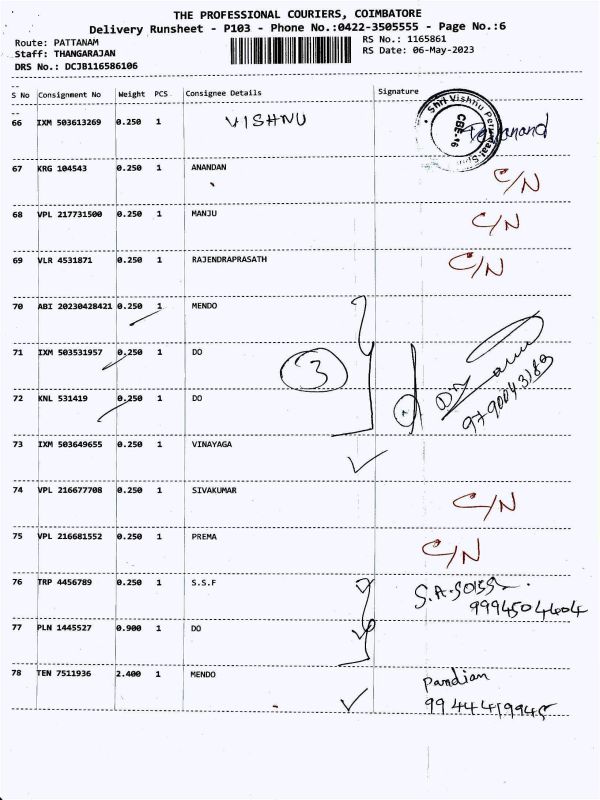 THE PROFESSIONAL COURIERS, COIMBATORE
Delivery Runsheet - P103 - Phone No.:0422-3505555 - Page No.:6
Route: PATTANAM RS No.: 1165861
Staff: THANGARAJAN RS Date: 06-May-2023
DRS No.: DCJB116586106
S No Consignment No Weight PCS Consignee Details Signature
66 IXM 503613269 0.250 1 VISHNU
Shri Vishnu
CBE-16
67 KRG 104543 0.250 1 ANANDAN C/N
68 VPL 217731500 0.250 1 MANJU C/N
69 VLR 4531871 0.250 1 RAJENDRAPRASATH C/N
70 ABI 20230428421 0.250 1 MENDO
71 IXM 503531957 0.250 1 DO
3
72 KNL 531419 0.250 1 DO
73 IXM 503649655 0.250 1 VINAYAGA
74 VPL 216677708 0.250 1 SIVAKUMAR C/N
75 VPL 216681552 0.250 1 PREMA C/N
76 TRP 4456789 0.250 1 S.S.F
77 PLN 1445527 0.900 1 DO
78 TEN 7511936 2.400 1 MENDO Pandian